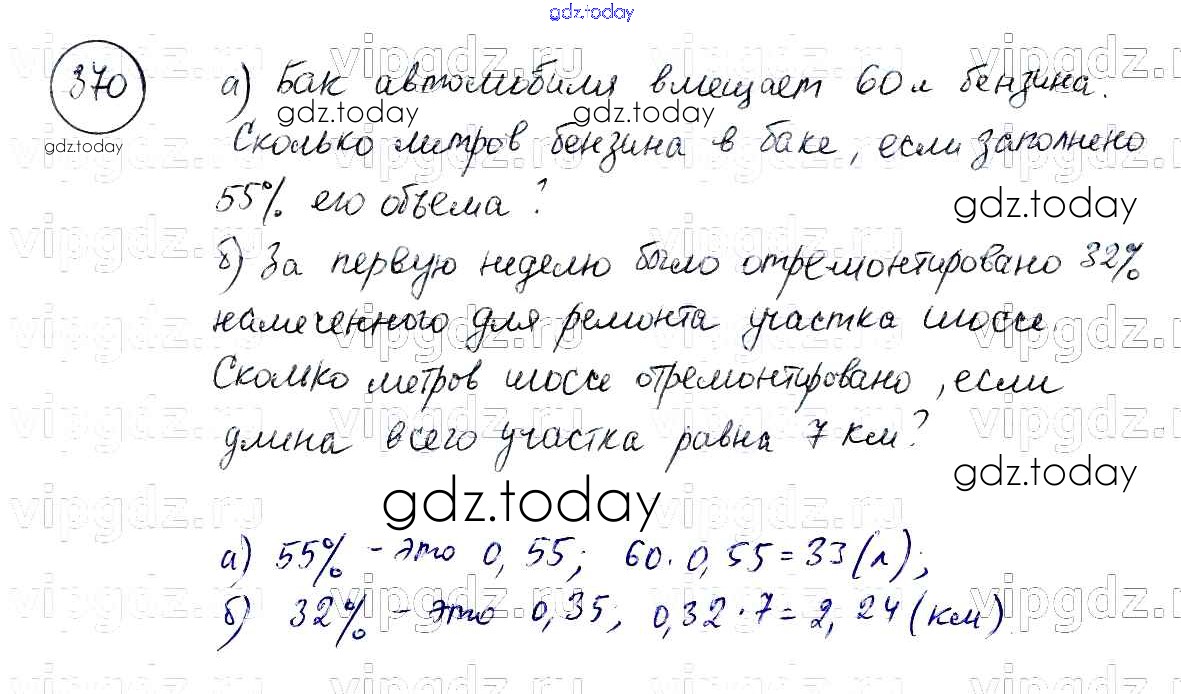 gdz.today
370 а) Бак автомобиля вмещает 60 л бензина.
gdz.today gdz.today
gdz.today
Сколько литров бензина в баке, если заполнено
55% его объема?
gdz.today
б) За первую неделю было отремонтировано 32%
намеченного для ремонта участка шоссе.
Сколько метров шоссе отремонтировано, если
длина всего участка равна 7 км?
gdz.today
gdz.today
а) 55% - это 0,55; 60·0,55=33(л);
б) 32% - это 0,35; 0,32·7=2,24(км)
vipgdz.ru